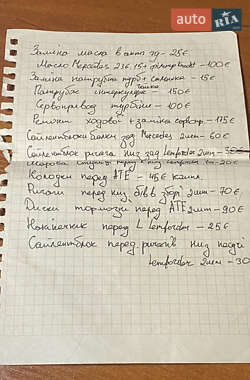 AUTO.RIA
Заміна масла в акпп 79 - 25€
Масло Mercedes 236.15 + фільтр - 100€
Заміна патрубка турб + сальника - 15€
Патрубок інтеркулера - 150€
Сервопривод турбіни - 100€
Ремонт ходової + заміна - 175€
Сайлентблоки балки зад Mercedes 2шт - 60€
Сайлентблок ричага низ зад Lemforder 2шт - 30
Колодки перед ATE - 45€
Ричаги перед низ 2шт - 70€
Диски тормозні перед ATE 2шт - 90€
Наконечник перед L Lemforder - 25€
Сайлентблок перед ричагів низ
Lemforder 2шт - 30